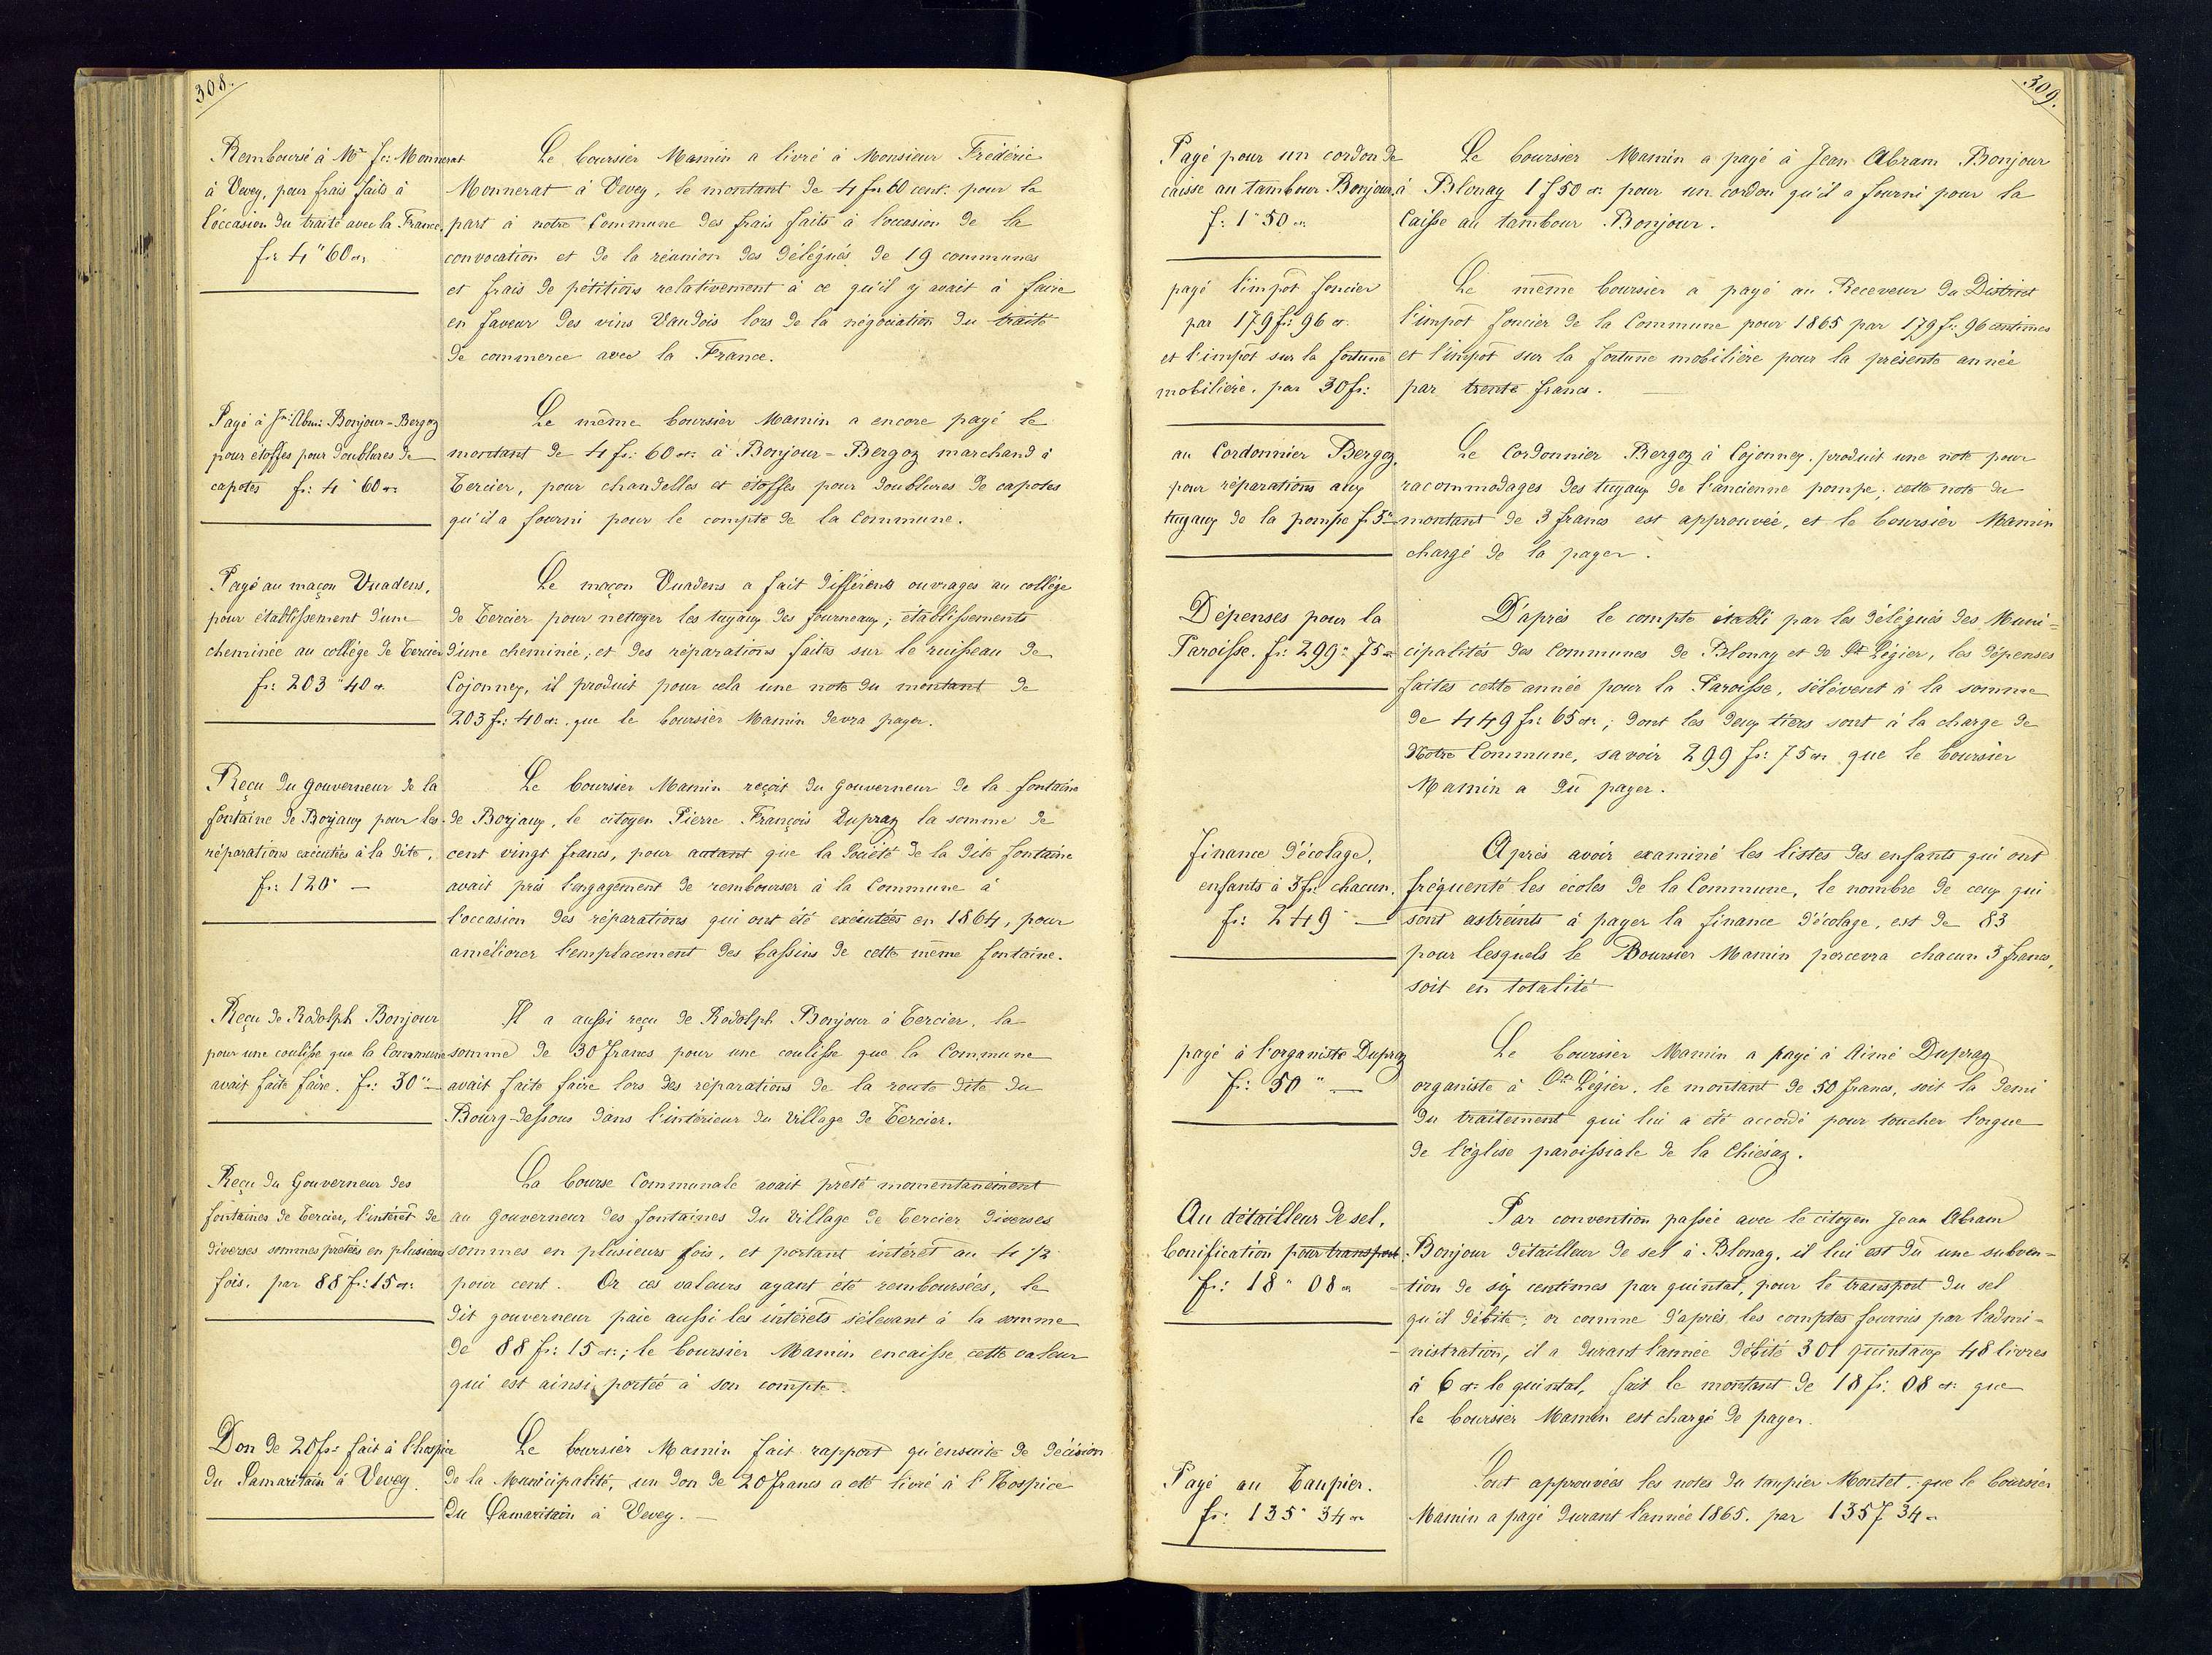 308.
Remboursé à Mr fr: Monnerat
à Vevey, pour frais faits à
l'occasion du traité avec la France.
frs 4 " 60 cs
Le boursier Mamin a livré à Monsieur Frédéric
Monnerat à Vevey, le montant de 4 frs 60 cent: pour la
part à notre Commune des frais faits à l'occasion de la
convocation et de la réunion des délégués de 19 communes
et frais de pétitions relativement à ce qu'il y avait à faire
en faveur des vins Vaudois lors de la négociation du traité
de commerce avec la France.
Payé à Jn: Abm: Bonjour-Bergoz
pour étoffes pour doublures de
capotes fr: 4 " 60 cs
Le même boursier Mamin a encore payé le
montant de 4 fr: 60 cs: à Bonjour = Bergoz marchand à
Tercier, pour chandelles et étoffes pour doublures de capotes
qu'il a fourni pour le compte de la Commune.
Payé au maçon Vuadens,
pour établissement d'une
cheminée au collége de Tercier
fr: 203 " 40 cs
Le maçon Vuadens a fait différents ouvrages au collége
de Tercier pour nettoyer les tuyaux des fourneaux; établissements
d'une cheminée; et des réparations faites sur le ruisseau de
Cojonnex, il produit pour cela une note du montant de
203 fr: 40 cs: que le boursier Mamin devra payer.
Reçu du gouverneur de la
fontaine de Borjaux pour les
réparations exécutées à la dite.
fr: 120 " —
Le boursier Mamin reçoit du gouverneur de la fontaine
de Borjaux, le citoyen Pierre François Dupraz la somme de
cent vingt francs, pour autant que la Société de la dite fontaine
avait pris l'engagement de rembourser à la Commune à
l'occasion des réparations qui ont été exécutées en 1864, pour
améliorer l'emplacement des bassins de cette même fontaine.
Reçu de Rodolph Bonjour
pour une coulisse que la Commune
avait faite faire. fr: 30 " —
Il a aussi reçu de Rodolph Bonjour à Tercier, la
somme de 30 francs pour une coulisse que la Commune
avait faite faire lors des réparations de la route dite du
Bourg-dessous dans l'intérieur du village de Tercier.
Reçu du Gouverneur des
fontaines de Tercier, l'intérêt de
diverses sommes prêtées en plusieurs
fois, par 88 fr: 15 cs:
La bourse Communale avait prêté momentanément
au gouverneur des fontaines du village de Tercier diverses
sommes en plusieurs fois, et portant intérêt au 4 1/2
pour cent. Or ces valeurs ayant été remboursées, le
dit gouverneur paie aussi les intérêts s'élevant à la somme
de 88 fr: 15 cs:; le boursier Mamin encaisse cette valeur
qui est ainsi portée à son compte.
Don de 20 frs: fait à l'hospice
du Samaritain à Vevey.
Le boursier Mamin fait rapport qu'ensuite de décision
de la Municipalité, un don de 20 francs a été livré à l'Hospice
du Samaritain à Vevey. —
309.
Payé pour un cordon de
caisse au tambour Bonjour,
f: 1 " 50 cs
Le boursier Mamin a payé à Jean Abram Bonjour
à Blonay 1 f 50 cs: pour un cordon qu'il a fourni pour la
Caisse au tambour Bonjour.
payé l'impôt foncier
par 179 frs 96 cs
et l'impôt sur la fortune
mobilière, par 30 fr:
Le même boursier a payé au Receveur du District
l'impôt foncier de la Commune pour 1865 par 179 fr: 96 centimes
et l'impôt sur la fortune mobilière pour la présente année
par trente francs. —
au Cordonnier Bergoz,
pour réparations aux
tuyaux de la pompe f: 3 " —
Le Cordonnier Bergoz à Cojonnex, produit une note pour
racommodages des tuyaux de l'ancienne pompe; cette note du
montant de 3 francs est approuvée, et le boursier Mamin
chargé de la payer.
Dépenses pour la
Paroisse. fr: 299 " 75 cs
D'après le compte établi par les délégués des Muni=
cipalités des Communes de Blonay et de St Légier, les dépenses
faites cette année pour la Paroisse, s'élèvent à la somme
de 449 fr: 65 cs:; dont les deux tiers sont à la charge de
Notre Commune, savoir 299 fr: 75 cs que le boursier
Mamin a dû payer.
Finance d'écolage,
enfants à 3 fr: chacun.
fr: 249 " —
Après avoir examiné les listes des enfants qui ont
fréquenté les écoles de la Commune, le nombre de ceux qui
sont astreints à payer la finance d'écolage, est de 83
pour lesquels le Boursier Mamin percevra chacun 3 francs,
soit en totalité
payé à l'organiste Dupraz
fr: 50 " —
Le boursier Mamin a payé à Aimé Dupraz
organiste à St Légier, le montant de 50 francs, soit la demi
du traitement qui lui a été accordé pour toucher l'orgue
de l'église paroissiale de la Chiésaz.
Au détailleur de sel,
bonification pour transport.
fr: 18 " 08 cs
Par convention passée avec le citoyen Jean Abram
Bonjour détailleur de sel à Blonay, il lui est dû une subven=
tion de six centimes par quintal, pour le transport du sel
qu'il débite; or comme d'après les comptes fournis par l'admi=
nistration, il a durant l'année débité 301 quintaux 48 livres
à 6 cs: le quintal, fait le montant de 18 fr: 08 cs: que
le boursier Mamin est chargé de payer.
Payé au Taupier.
fr: 135 " 34 cs
Sont approuvées les notes du taupier Montet, que le boursier
Mamin a payé durant l'année 1865. par 135 f 34 cs